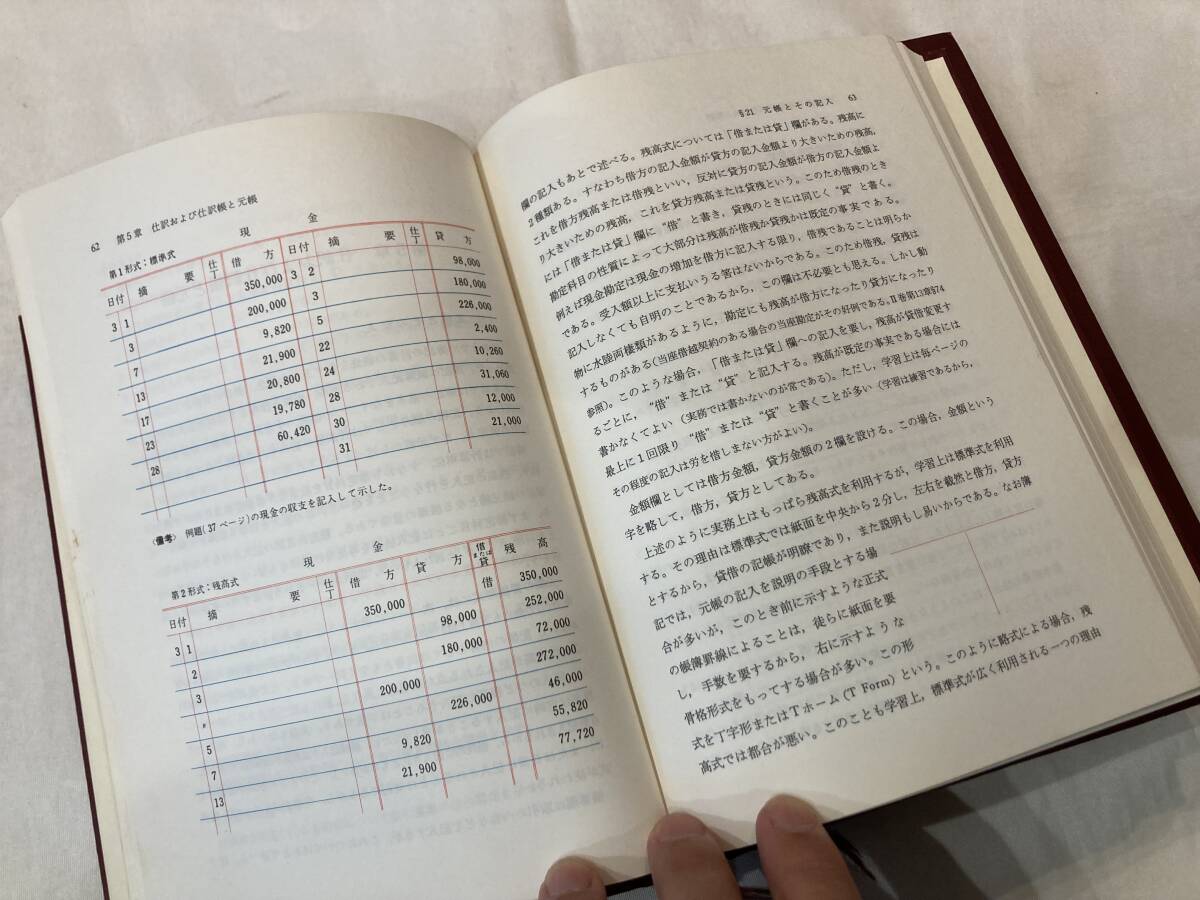 62 第5章 仕訳および仕訳帳と元帳
第1形式：標準式 現 金
日付 摘 要 仕丁 借 方 日付 摘 要 仕丁 貸 方
3 1 350,000 3 2 98,000
3 200,000 3 180,000
7 9,820 5 226,000
13 21,900 22 2,400
17 20,800 24 10,260
23 19,780 28 31,060
28 60,420 30 12,000
31 21,000
〈備考〉 例題(37ページ)の現金の収支を記入して示した。
第2形式：残高式 現 金
日付 摘 要 仕丁 借 方 貸 方 借または貸 残 高
3 1 350,000 借 350,000
2 98,000 252,000
3 180,000 72,000
〃 200,000 272,000
5 226,000 46,000
7 9,820 55,820
13 21,900 77,720
§21 元帳とその記入 63
欄の記入もあとで述べる。残高式については「借または貸」欄がある。残高に
2種類ある。すなわち借方の記入金額が貸方の記入金額より大きいための残高，
これを借方残高または借残といい，反対に貸方の記入金額が借方の記入金額よ
り大きいための残高，これを貸方残高または貸残という。このため借残のとき
には「借または貸」欄に“借”と書き，貸残のときには同じく“貸”と書く。
勘定科目の性質によって大部分は残高が借残か貸残かは既定の事実である。
例えば現金勘定は現金の増加を借方に記入する限り，借残であることは明らか
である。受入額以上に支払いうる筈はないからである。このため借残，貸残は
記入しなくても自明のことであるから，この欄は不必要とも思える。しかし動
物に水陸両棲類があるように，勘定にも残高が借方になったり貸方になったり
するものがある(当座借越契約のある場合の当座勘定がその好例である。II巻第13章§74
参照)。このような場合，「借または貸」欄への記入を要し，残高が貸借変更す
るごとに，“借”または“貸”と記入する。残高が既定の事実である場合には
書かなくてよい（実務では書かないのが常である）。ただし，学習上は毎ページの
最上に1回限り“借”または“貸”と書くことが多い（学習は練習であるから，
その程度の記入は労を惜しまない方がよい）。
金額欄としては借方金額，貸方金額の2欄を設ける。この場合，金額という
字を略して，借方，貸方としてある。
上述のように実務上はもっぱら残高式を利用するが，学習上は標準式を利用
する。その理由は標準式では紙面を中央から2分し，左右を截然と借方，貸方
とするから，貸借の記帳が明瞭であり，また説明もし易いからである。なお簿
記では，元帳の記入を説明の手段とする場
合が多いが，このとき前に示すような正式
の帳簿罫線によることは，徒らに紙面を要
し，手数を要するから，右に示すような
骨格形式をもってする場合が多い。この形
式を丁字形またはTホーム(T Form)という。このように略式による場合，残
高式では都合が悪い。このことも学習上，標準式が広く利用される一つの理由